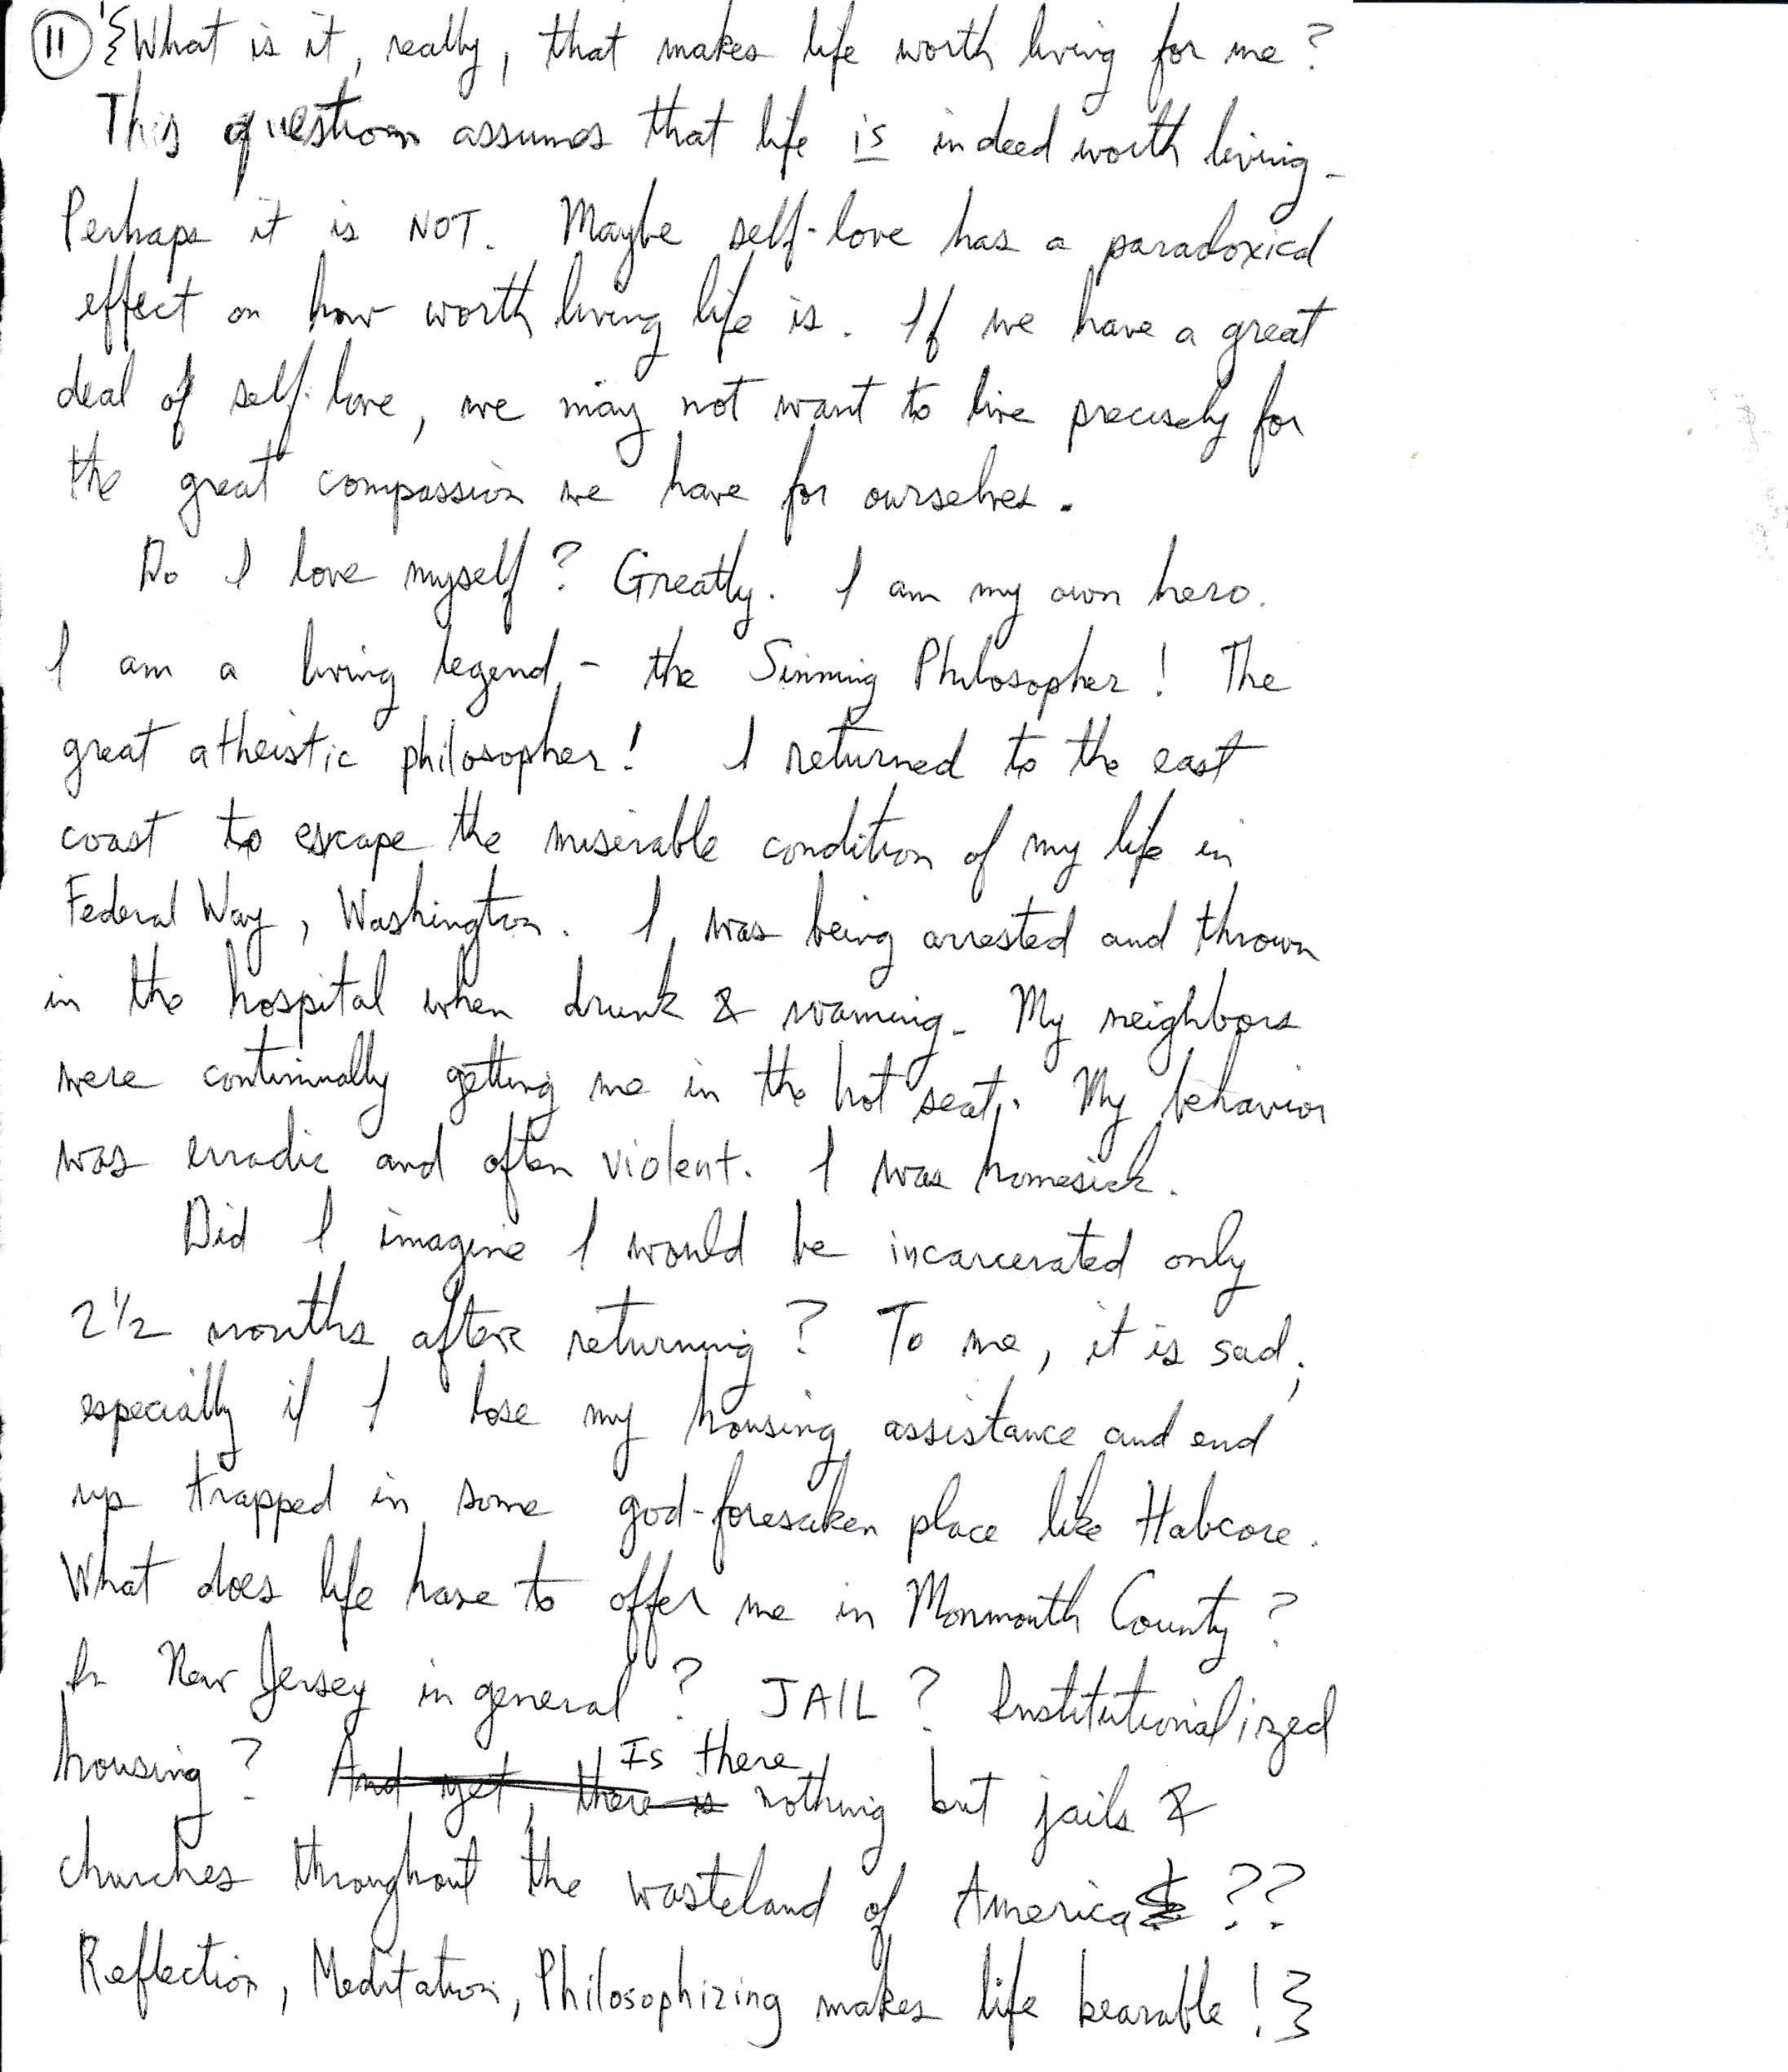 11 {What is it, really, that makes life worth living for me?
This question assumes that life is indeed worth living.
Perhaps it is NOT. Maybe self-love has a paradoxical
effect on how worth living life is. If we have a great
deal of self-love, we may not want to live precisely for
the great compassion we have for ourselves.
Do I love myself? Greatly. I am my own hero.
I am a living legend - the Sinning Philosopher! The
great atheistic philosopher! I returned to the east
coast to escape the miserable condition of my life in
Federal Way, Washington. I was being arrested and thrown
in the hospital when drunk & roaming. My neighbors
were continually getting me in the hot seat. My behavior
was erradic and often violent. I was homesick.
Did I imagine I would be incarcerated only
2 1/2 months after returning? To me, it is sad;
especially if I lose my housing assistance and end
up trapped in some god-foresaken place like Habcore.
What does life have to offer me in Monmouth County?
In New Jersey in general? JAIL? Institutionalized
housing? And yet, there is Is there nothing but jails &
churches throughout the wasteland of America??
Reflection, Meditation, Philosophizing makes life bearable!}